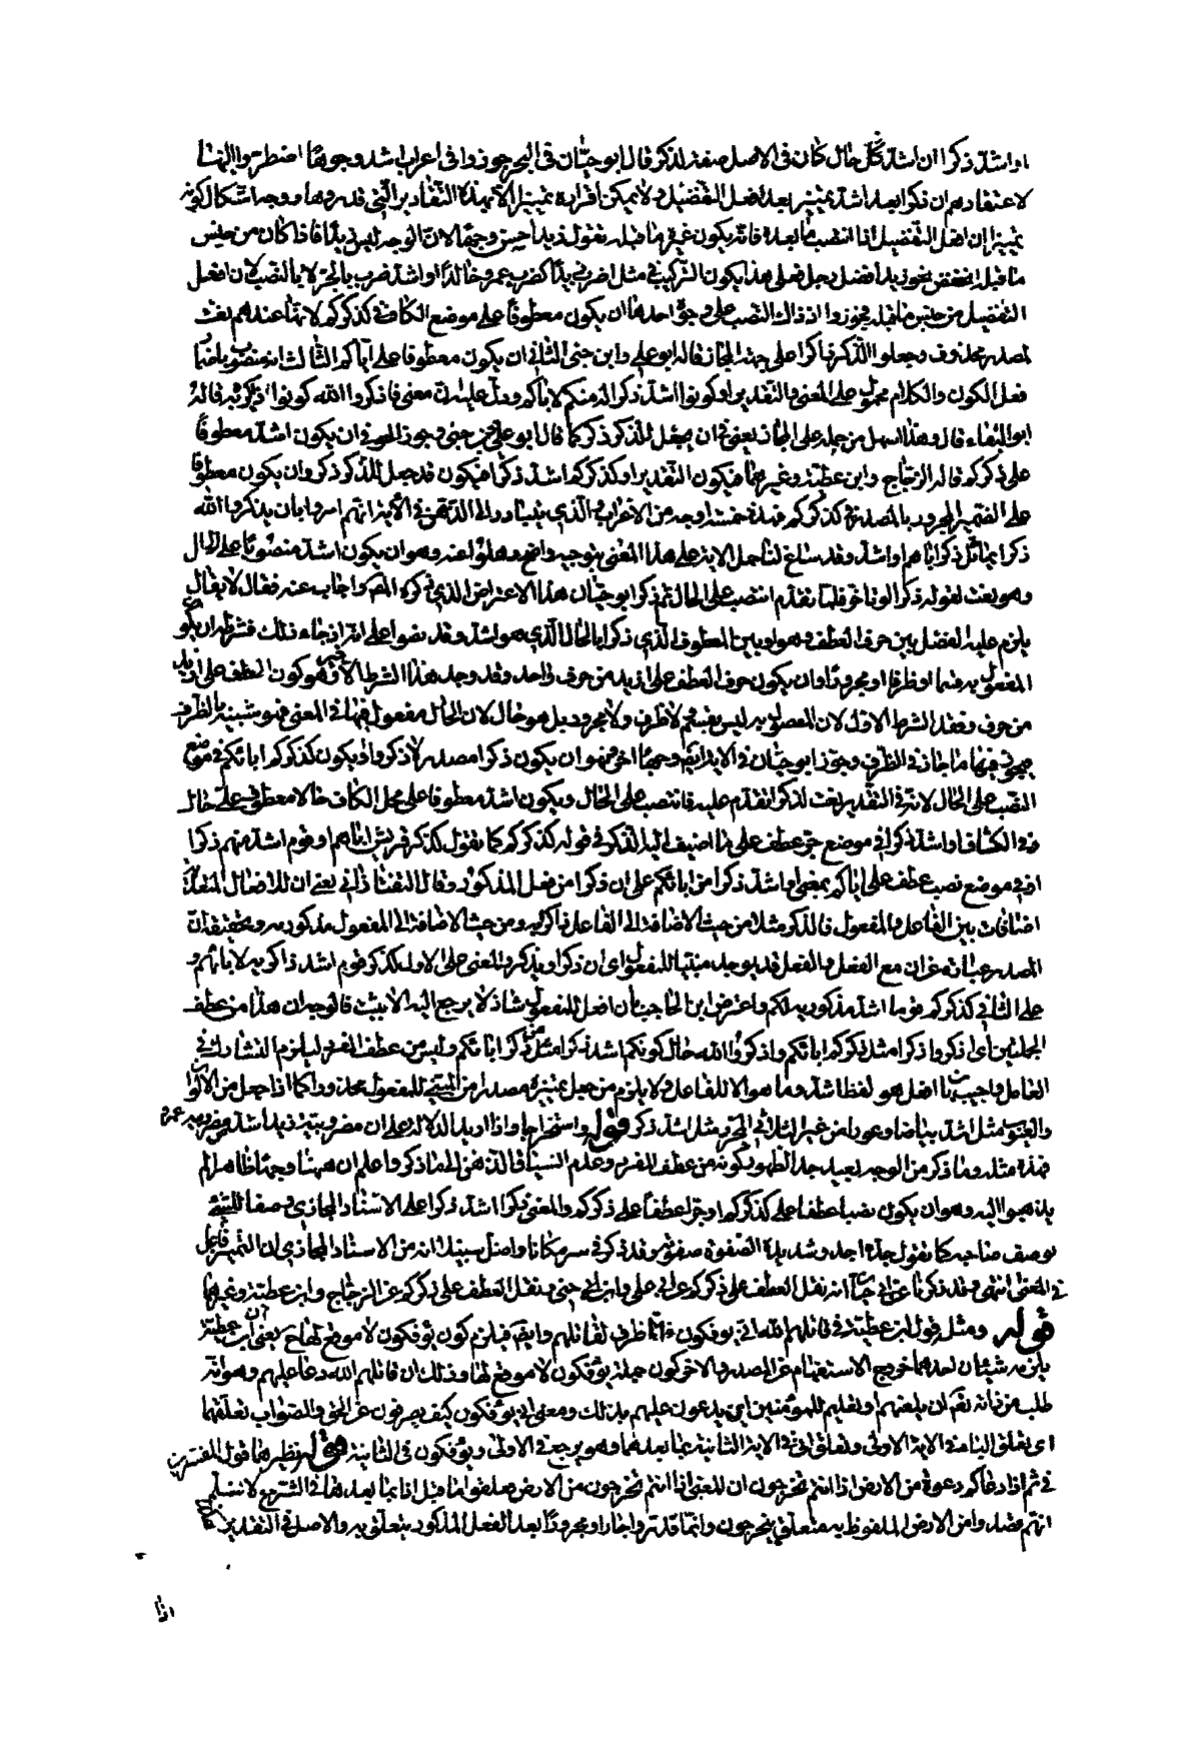 او اشد ذكرا ان اشد كل حال كان في الاصل صفة لذكر قال ابو حيان في البحر جوزوا في اعراب اشد وجوها اضطروا اليها
لاعتقادهم ان ذكرا بعد اشد تمييز بعد افعل التفضيل ولا يمكن اقراره تمييزا الا بهذه التقادير التي قدروها ووجه اشكال كونه
تمييزا ان افعل التفضيل اذا انتصب ما بعده فانه يكون غير ما قبله تقول زيد احسن وجها لان الوجه ليس زيدا فاذا كان من جنس
ما قبله انخفض نحو زيد افضل رجل فعلى هذا يكون التركيب في مثل اضرب زيدا كضرب عمرو خالدا او اشد ضرب بالجر لا بالنصب لان افعل
التفضيل من جنس ما قبله فجوزوا اذ ذاك النصب على وجوه احدها ان يكون معطوفا على موضع الكاف في كذكركم لانها عندهم نعت
لمصدر محذوف وجعلوا الذكر ذاكرا على جهة المجاز قاله ابو علي وابن جني الثاني ان يكون معطوفا على اباكم الثالث انه منصوب باضمار
فعل الكون والكلام محمول على المعنى والتقدير او كونوا اشد ذكرا له منكم لاباكم ودل عليه ان معنى فاذكروا الله كونوا ذاكريه قاله
ابو البقاء قال وهذا اسهل من حمله على المجاز يعني في ان يجعل للذكر ذكر كما قال ابو علي وابن جني وجوزوا الجر في ان يكون اشد معطوفا
على ذكركم قاله الزجاج وابن عطية وغيرهما فيكون التقدير او كذكركم اشد ذكرا فيكون قد جعل للذكر ذكر وان يكون معطوفا
على الضمير المجرور بالمصدر في كذكركم فهذه خمسة اوجه من الاعراب الذي يتبادر الى الذهن في الاية انهم امروا بان يذكروا الله
ذكرا يماثل ذكر اباهم او اشد وقد ساغ لنا حمل الاية على هذا المعنى بتوجيه واضح وهلوا عنه وهو ان يكون اشد منصوبا على الحال
وهو نعت لقوله ذكرا لو تاخر فلما تقدم انتصب على الحال ثم ذكر ابو حيان هذا الاعتراض الذي ذكره المص واجاب عنه فقال لا يقال
يلزم عليه الفصل بين حرف العطف وهو او وبين المعطوف الذي ذكرا بالحال الذي هو اشد وقد نصوا على انه اذا جاء ذلك فشرطه ان يكون
المفصول به قسما او ظرفا او مجرورا وان يكون حرف العطف على ازيد من حرف واحد وقد وجد هذا الشرط الاخر وهو كون العطف على ازيد
من حرف وفقد الشرط الاول لان المفصول به ليس بقسم ولا ظرف ولا مجرور بل هو حال لان الحال مفعول فيها في المعنى فهو شبيه بالظرف
فيجوز فيها ما جاز في الظرف وجوز ابو حيان في الاية ايضا وجها اخر فهو ان يكون ذكرا مصدرا لاذكروا ويكون كذكركم اباكم في موضع
النصب على الحال لانه في التقدير نعت لذكرا تقدم عليه فانتصب على الحال ويكون اشد معطوفا على محل الكاف حالا معطوفة على حال
وفي الكشاف او اشد ذكرا في موضع جر عطف على ما اضيف اليه الذكر في قوله كذكركم كما تقول كذكر قريش اباهم او قوم اشد منهم ذكرا
او في موضع نصب عطف على اباكم بمعنى او اشد ذكرا من اباكم على ان ذكرا من فعل المذكور وقال التفتازاني يعني ان للافعال المتعدية
اضافات بين الفاعل والمفعول فالذكر مثلا من حيث الاضافة الى الفاعل ذاكرية ومن حيث الاضافة الى المفعول مذكورية وتحقيقه ان
المصدر عبارة عن ان مع الفعل والفعل قد يوجد مبنيا للمفعول اي ان ذكر او يذكر والمعنى على الاول كذكر قوم اشد ذاكرية لابائهم و
على الثاني كذكركم قوما اشد مذكورية لكم واعترض ابن الحاجب بان افعل للمفعول شاذ لا يرجع اليه الا بثبت فالوجه ان هذا من عطف
الجملتين اي اذكروا ذكرا مثل ذكركم اباءكم واذكروا الله حال كونكم اشد ذكرا من ذكر اباءكم وليس من عطف المفرد ليلزم التشارك في
العامل واجيب بان افعل هو لفظ اشد وما هو الا للفاعل ولا يلزم من جعل تمييزه مصدرا من المبني للمفعول محذور كما اذا جعل من الالوان
والعيوب مثل اشد بياضا وعورا من غير الثلاثي المجرد مثل اشد ذكر قوله واستخراجا واذا اريد الدلالة على ان مضروبية زيد اشد من مضروبية عمرو
فهذه مثله وما ذكر من الوجه بعيد جدا لظهور كونه من عطف المفرد وعدم انسياق الذهن الى ما ذكر واعلم ان ههنا وجها ظاهرا لم
يذهبوا اليه وهو ان يكون نصبا عطفا على كذكركم او جرا عطفا على ذكركم والمعنى ذكرا اشد ذكرا على الاسناد المجازي وصفا للشيء
بوصف صاحبه كما تقول جد اجد وشديد الصفوة صفوته وقد ذكر في سر مكانا واضل سبيلا انه من الاسناد المجازي لان التمييز فاعل
في المعنى انتهى وقد ذكرنا عن ابي حيان انه نقل العطف على ذكركم عن ابي علي وابن جني ونقل العطف على ذكركم عن الزجاج وابن عطية وغيرهما
قوله ومثله قول ابن عطية في قاتلهم الله اني يوفكون ان اني ظرف لقاتلهم وايضا فيلزم كون يوفكون لا موقع لها ح يعني ان ابن عطية
يلزمه شيئان احدهما خروج الاستفهام عن الصدر والاخر كون جملة يوفكون لا موقع لها وذلك ان قاتلهم الله دعا عليهم وهو انه
طلب من ذاته نفسه ان يلعنهم او تعليم للمؤمنين اي يدعون عليهم بذلك ومعنى اني يوفكون كيف يصرفون عن الحق والصواب تعلقهما
اي تعلق اليتامى في الاية الاولى وتعلق اني في الاية الثانية بما بعدهما وهو يرجع في الاولى ويوفكون في الثانية قوله ونظيرهما قول المفسرين
في ثم اذا دعاكم دعوة من الارض اذا انتم تخرجون ان المعنى اذا انتم تخرجون من الارض فعلقوا ما قبل اذا بما بعدها في الشرح لا نسلم
انهم فصلوا من الارض الملفوظ به متعلق بتخرجون وانما قدروا جارا ومجرورا بعد الفعل المذكور يتعلق به والاصل في التقدير
اذا